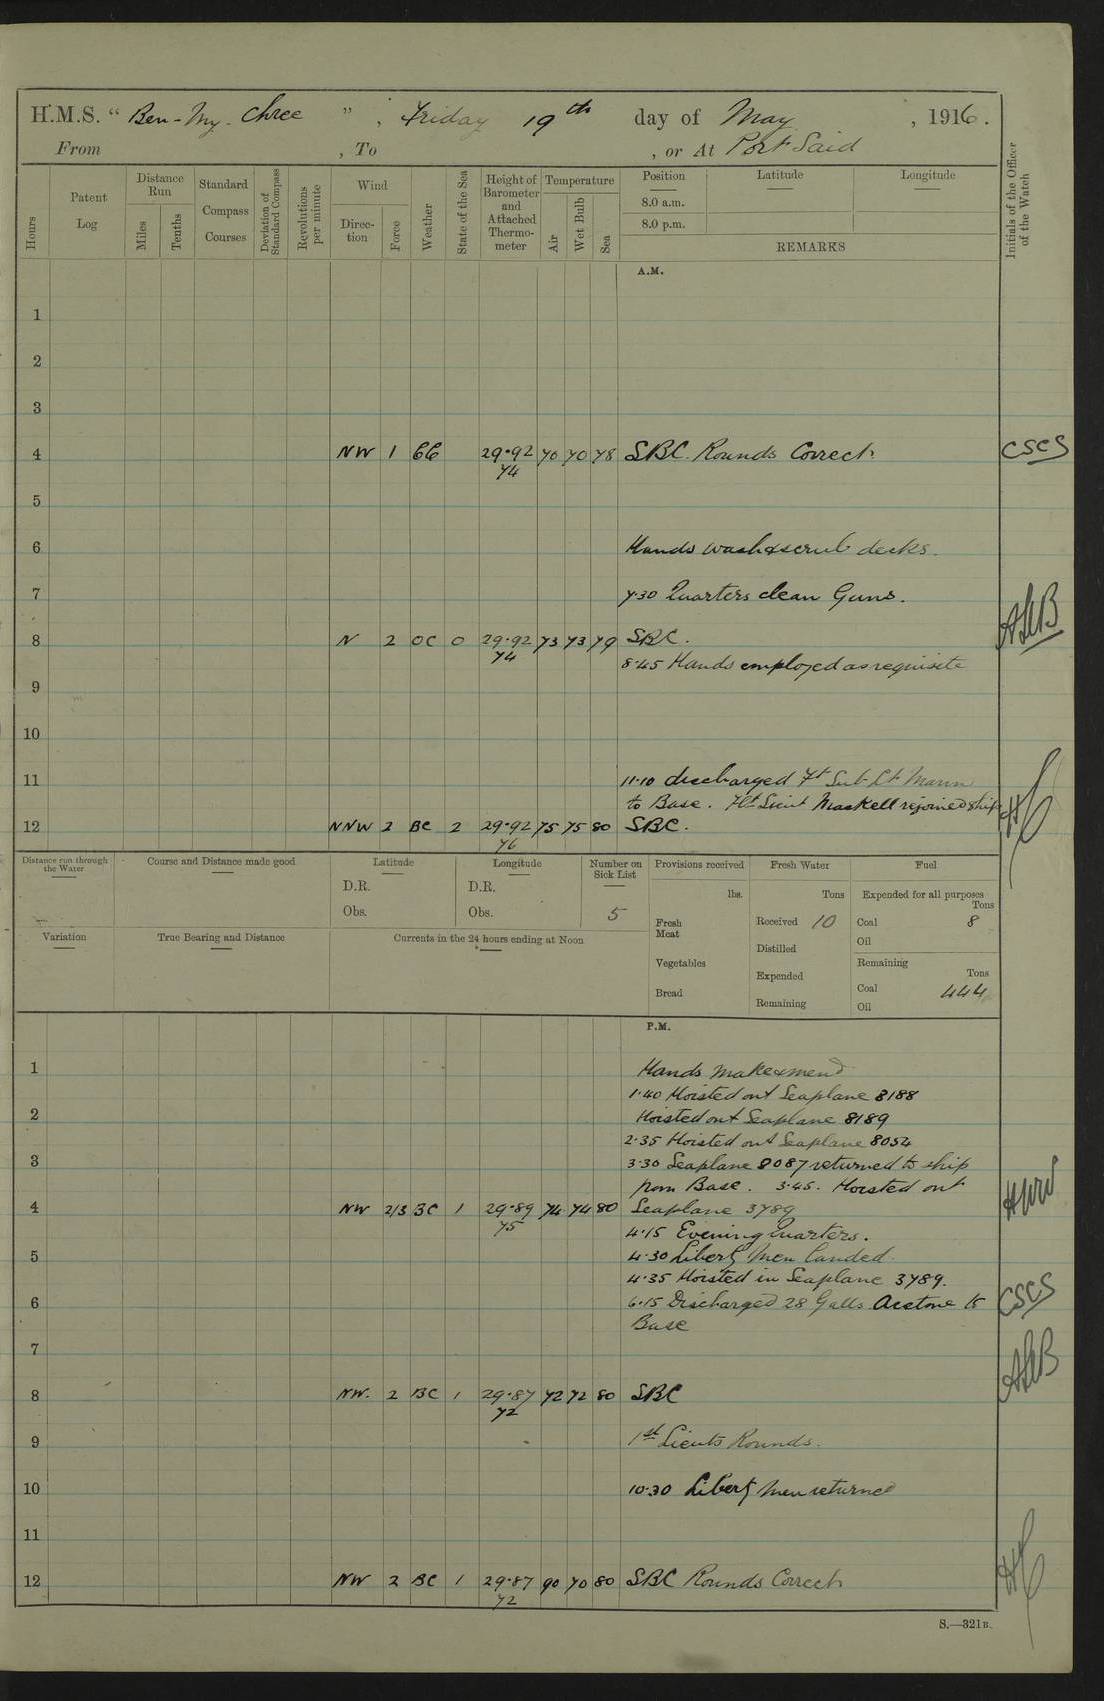 H.M.S. "Ben-My-Chree", Friday 19th day of May, 1916.
From , To , or At Port Said
Hours
Patent Log
Distance Run
Miles
Tenths
Standard Compass Courses
Deviation of Standard Compass
Revolutions per minute
Wind
Direction
Force
Weather
State of the Sea
Height of Barometer and Attached Thermometer
Temperature
Air
Wet Bulb
Sea
Position
8.0 a.m.
8.0 p.m.
Latitude
Longitude
REMARKS
Initials of the Officer of the Watch
A.M.
1
2
3
4 NW 1 29.92 70 70 78 SBC. Rounds Correct. CSCS
74
5
6 Hands wash & scrub decks.
7 7.30 Quarters clean Guns.
8 N 2 OC 0 29.92 73 73 79 SBC.
74
8.45 Hands employed as requisite
9
10
11 11.10 discharged Ft Sub-Lt
to Base. Flt Lieut Maskell rejoined ship
12 NNW 2 BC 2 29.92 75 75 80 SBC.
76
Distance run through the Water
Course and Distance made good
Latitude
D.R.
Obs.
Longitude
D.R.
Obs.
Number on Sick List
5
Provisions received
lbs.
Fresh Meat
Vegetables
Bread
Fresh Water
Tons
Received 10
Distilled
Expended
Remaining
Fuel
Expended for all purposes
Tons
Coal 8
Oil
Remaining
Tons
Coal 444
Oil
Variation
True Bearing and Distance
Currents in the 24 hours ending at Noon
P.M.
1 Hands make & mend
1.40 Hoisted out Seaplane 8188
2 Hoisted out Seaplane 8189
2.35 Hoisted out Seaplane 8054
3 3.30 Seaplane 8087 returned to ship
from Base. 3.45. Hoisted out
4 NW 2/3 BC 1 29.89 74 74 80 Seaplane 3789
75
4.15 Evening Quarters.
5 4.30 Liberty Men landed.
4.35 Hoisted in Seaplane 3789.
6 6.15 Discharged 28 Galls Acetone to CSCS
Base
7
8 NW. 2 BC 1 29.87 72 72 80 SBC
72
9 1st Lieuts Rounds.
10 10.30 Liberty Men returned
11
12 NW 2 BC 1 29.87 90 70 80 SBC Rounds Correct
72
S.—321B.